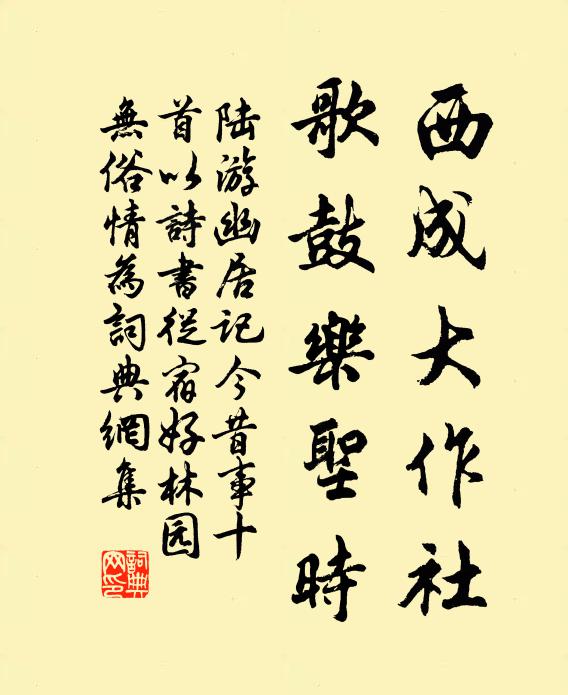 西成大作社
歌鼓樂聖時
陆游幽居记今昔事十
首以詩書從宿好林园
無俗情為詞典網集
詞典
网印